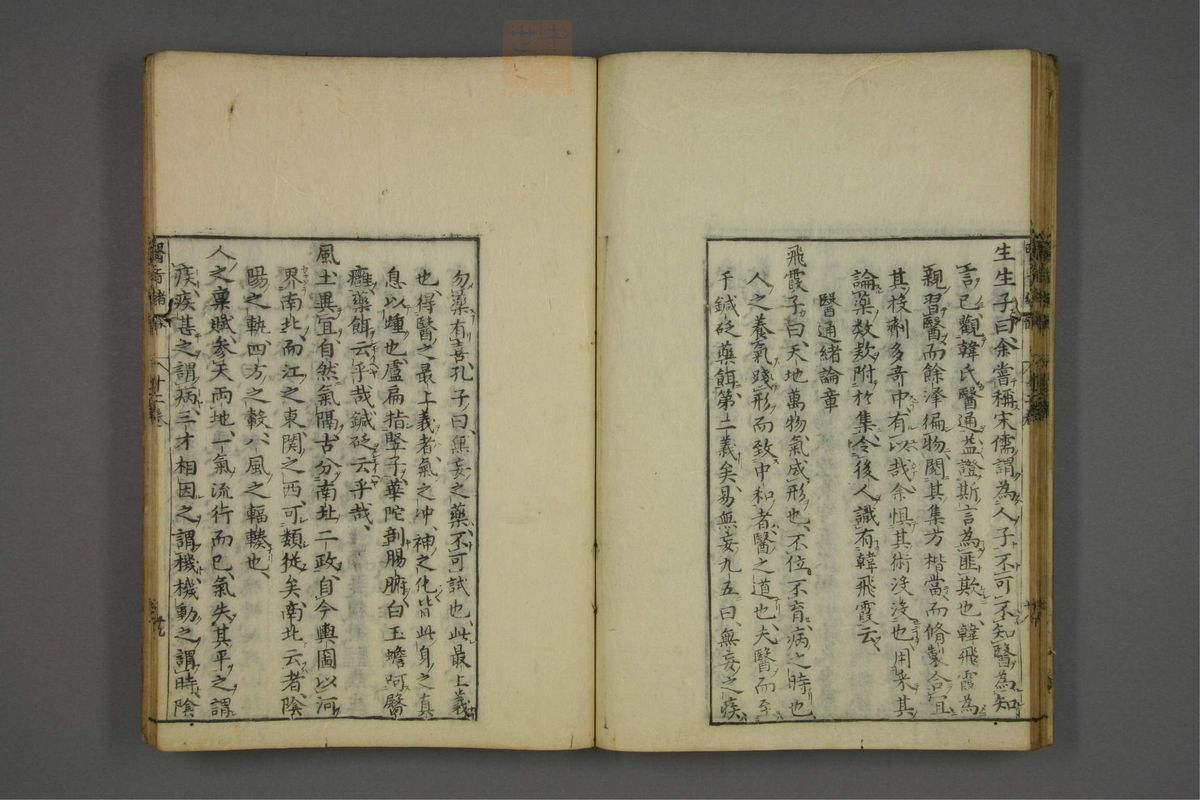 生生子曰余嘗稱宋儒謂為人子不可不知醫為知
言已觀韓氏醫通益證斯言為匪欺也韓飛霞為
親習醫而餘澤徧物閱其集方楷當而脩製合宜
其投劑多奇中有以哉余惧其術没没也用采其
論藥数欵附於集令後人識有韓飛霞云
醫通緒論章
飛霞子曰天地萬物氣成形也不位不育病之時也
人之養氣踐形而致中和者醫之道也夫醫而至
于鍼砭藥餌第二義矣易無妄九五曰無妄之疾
勿藥有喜孔子曰無妄之藥不可試也此最上義
也得醫之最上義者氣之冲神之化皆此身之真
息以踵也盧扁指竪子華陀剖腸腑白玉蟾呵醫
癰藥餌云乎哉鍼砭云乎哉
風土異宜自然氣隔古分南北二政自今輿圖以河
界南北而江之東関之西可類從矣南北云者陰
陽之軌四方之轂八風之輻輳也
人之稟賦參天兩地一氣流行而已氣失其平之謂
疾疾甚之謂病三才相因之謂機機動之謂時陰
醫旨緒